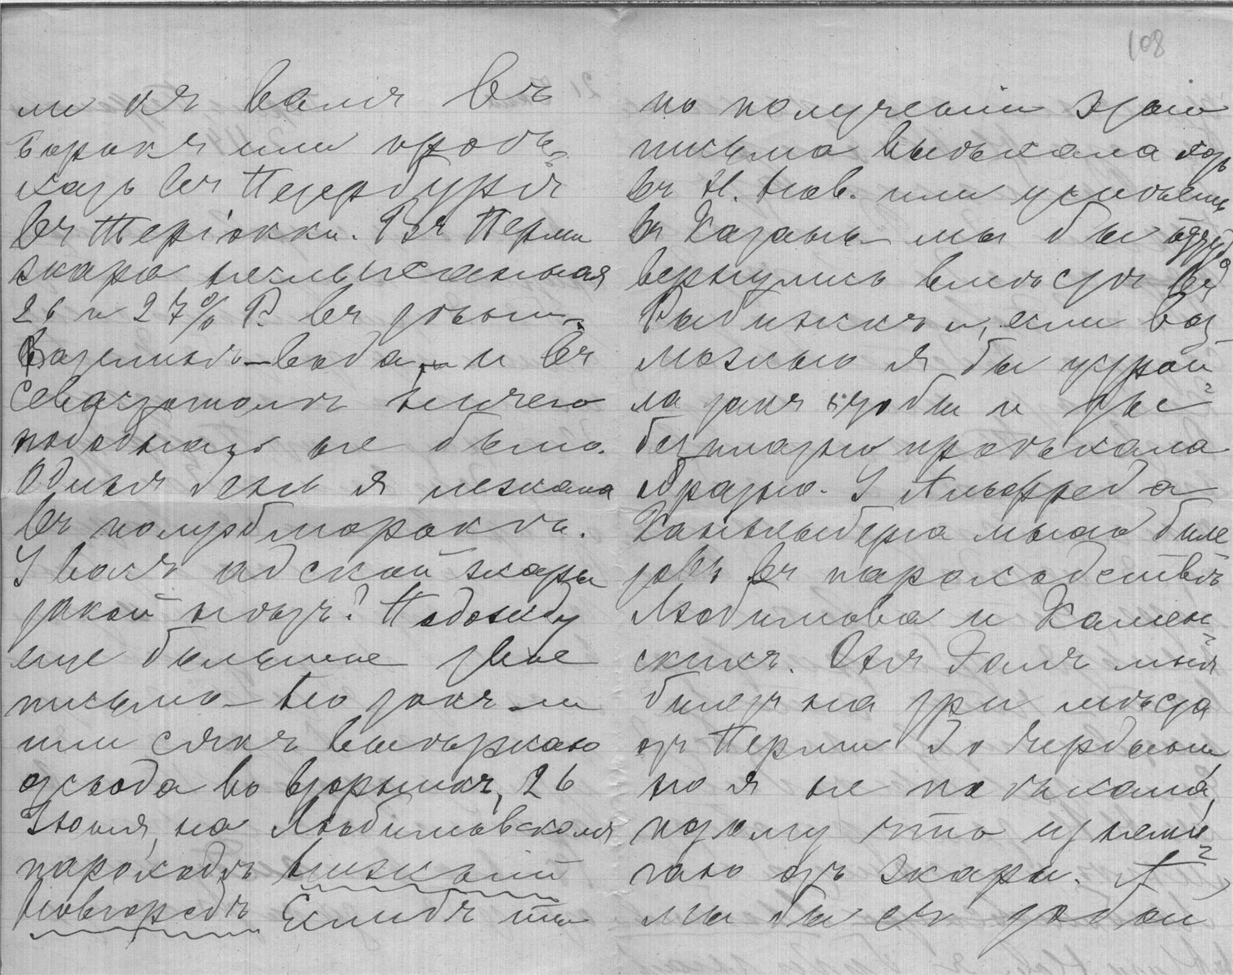 108
ли къ вамъ въ
Боракъ или проѣ-
хать въ Петербургъ
въ Теріокки. Въ Перми
жара неслыханная
26 и 27% Р. въ тѣни.
Вода и въ
Севастополѣ ничего
подобнаго не было.
Одинъ день я лежала
въ полуобморокѣ.
У васъ адской жары
такой нѣтъ? Подожду
еще Твое
письмо но такъ ли
или сякъ выѣзжаю
отсюда во вторникъ, 26
Іюня, на Любимовскомъ
пароходѣ Нижній
Новгородъ Еслибъ ты
по полученіи этого
письма выѣхала
въ Н. Нов. или успѣешь
въ Казань мы бы оттуда
вернулись вмѣстѣ въ
Рыбинскъ и, если воз
можно я бы устрои-
ла такъ чтобы и ты
безплатно проѣхала
обратно. У Альфреда
много биле
товъ въ пароходствѣ
Любимова и Камен-
скихъ. Онъ далъ мнѣ
билетъ на три мѣста
отъ Перми до Чердыни
но я не поѣхала,
потому что изнемо-
гаю отъ жары. А
мы бы съ тобой